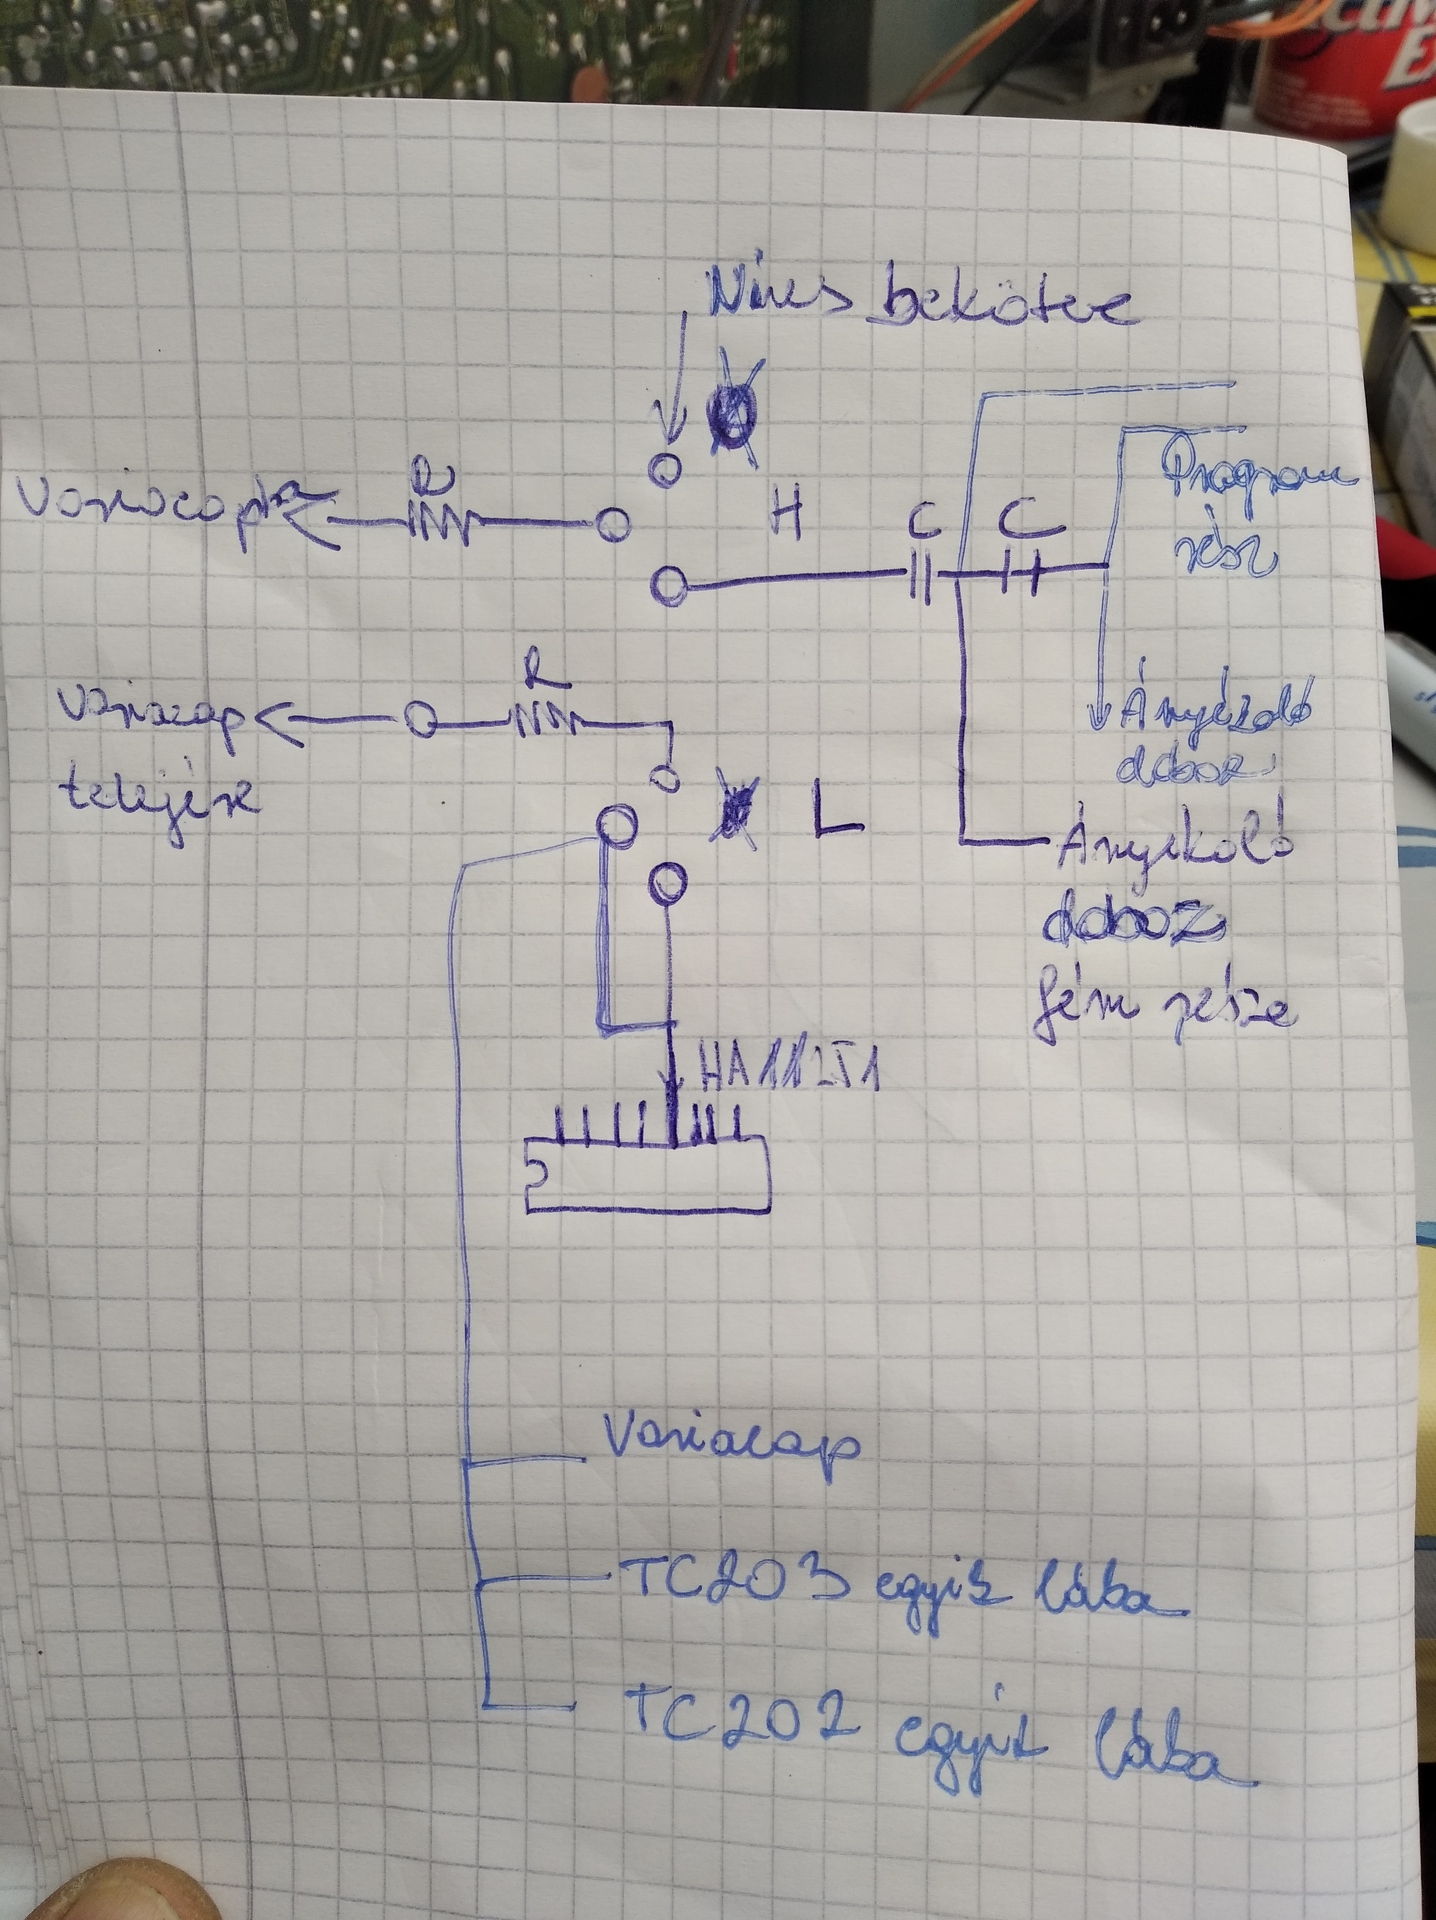 Nincs bekötve
Variocapra
R
H
C
C
Program
rész
R
Variacap
tetejére
Árnyékoló
doboz
L
Árnyékoló
doboz
fém része
HA11251
Variacap
TC203 egyik lába
TC202 egyik lába